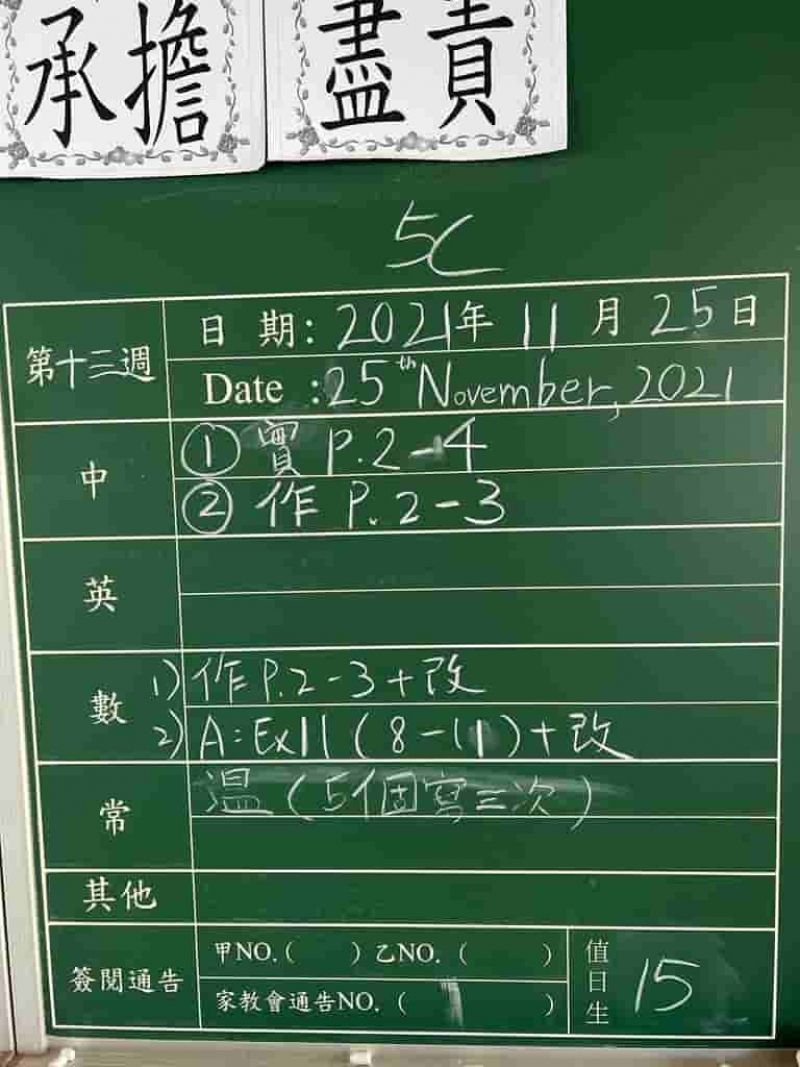 承擔 盡責
5C
第十三週
日 期：2021年 11 月 25日
Date : 25th November, 2021
中
① 實 P.2-4
② 作 P.2-3
英
數
1) 作 P.2-3+改
2) A:Ex11 (8-11)+改
常
溫 (5個寫三次)
其他
簽閱通告
甲NO.( ) 乙NO. ( )
家教會通告NO. ( )
值日生 15